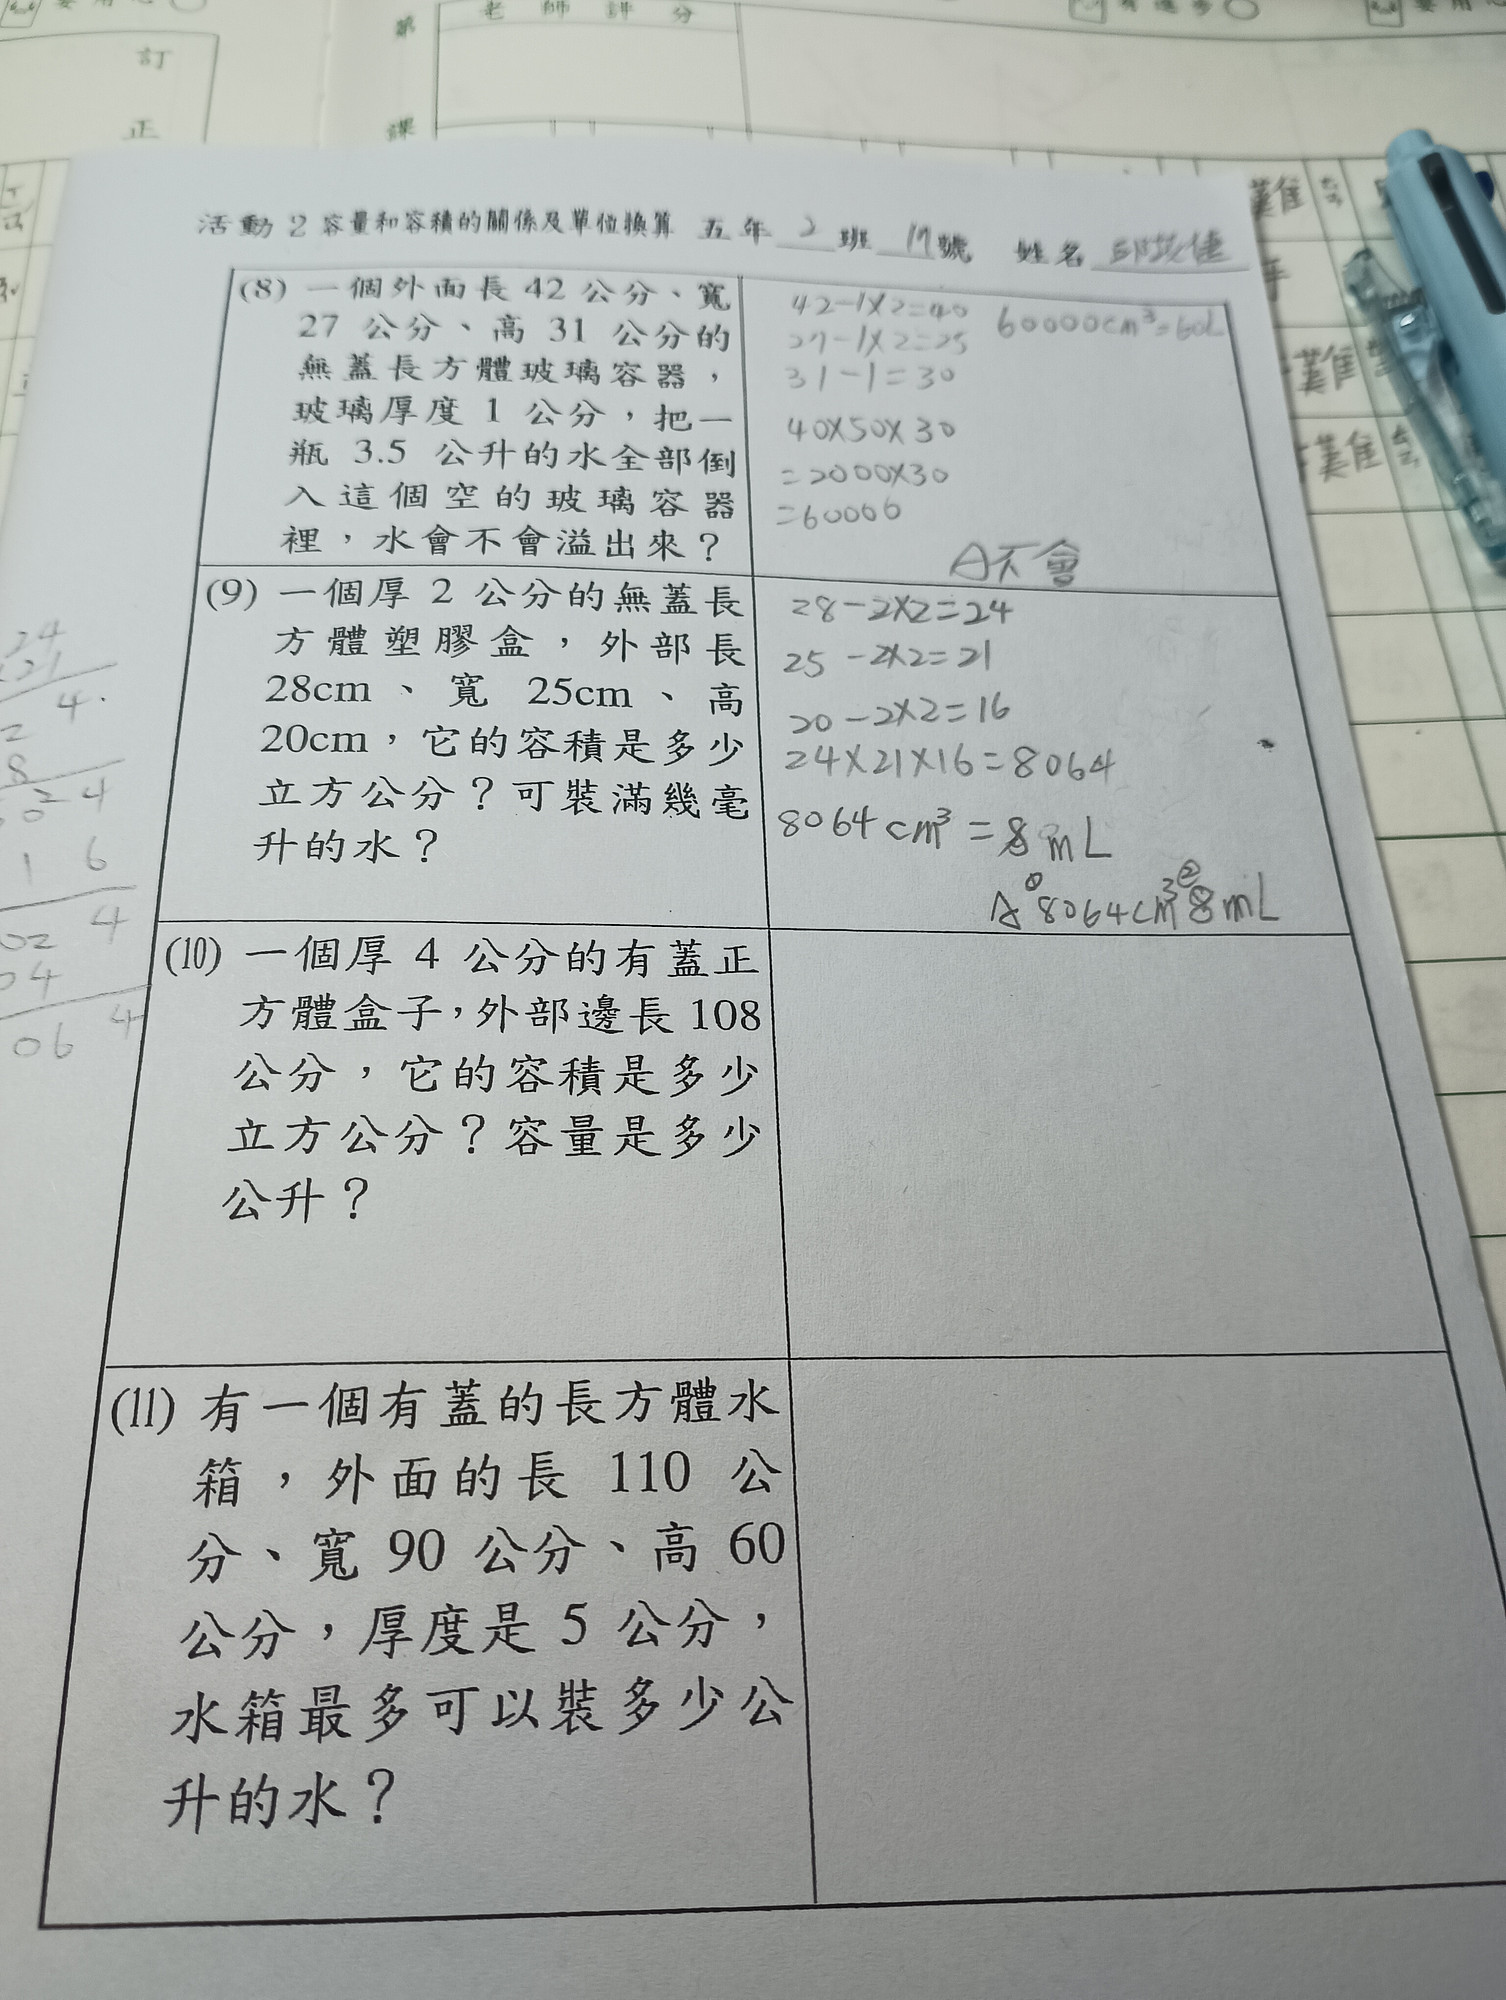 老師評分
第
課
訂
正
活動2容量和容積的關係及單位換算 五年 2 班 17號 姓名
(8) 一個外面長42公分、寬
27公分、高31公分的
無蓋長方體玻璃容器，
玻璃厚度1公分，把一
瓶3.5公升的水全部倒
入這個空的玻璃容器
裡，水會不會溢出來？
42-1X2=40
27-1X2=25
31-1=30
40X50X30
=2000X30
=60000
60000cm³=60L
A不會
(9) 一個厚2公分的無蓋長
方體塑膠盒，外部長
28cm、寬25cm、高
20cm，它的容積是多少
立方公分？可裝滿幾毫
升的水？
28-2X2=24
25-2X2=21
20-2X2=16
24X21X16=8064
8064cm³=8mL
A①8064cm³②8mL
(10) 一個厚4公分的有蓋正
方體盒子，外部邊長108
公分，它的容積是多少
立方公分？容量是多少
公升？
(11) 有一個有蓋的長方體水
箱，外面的長110公
分、寬90公分、高60
公分，厚度是5公分，
水箱最多可以裝多少公
升的水？
24
21